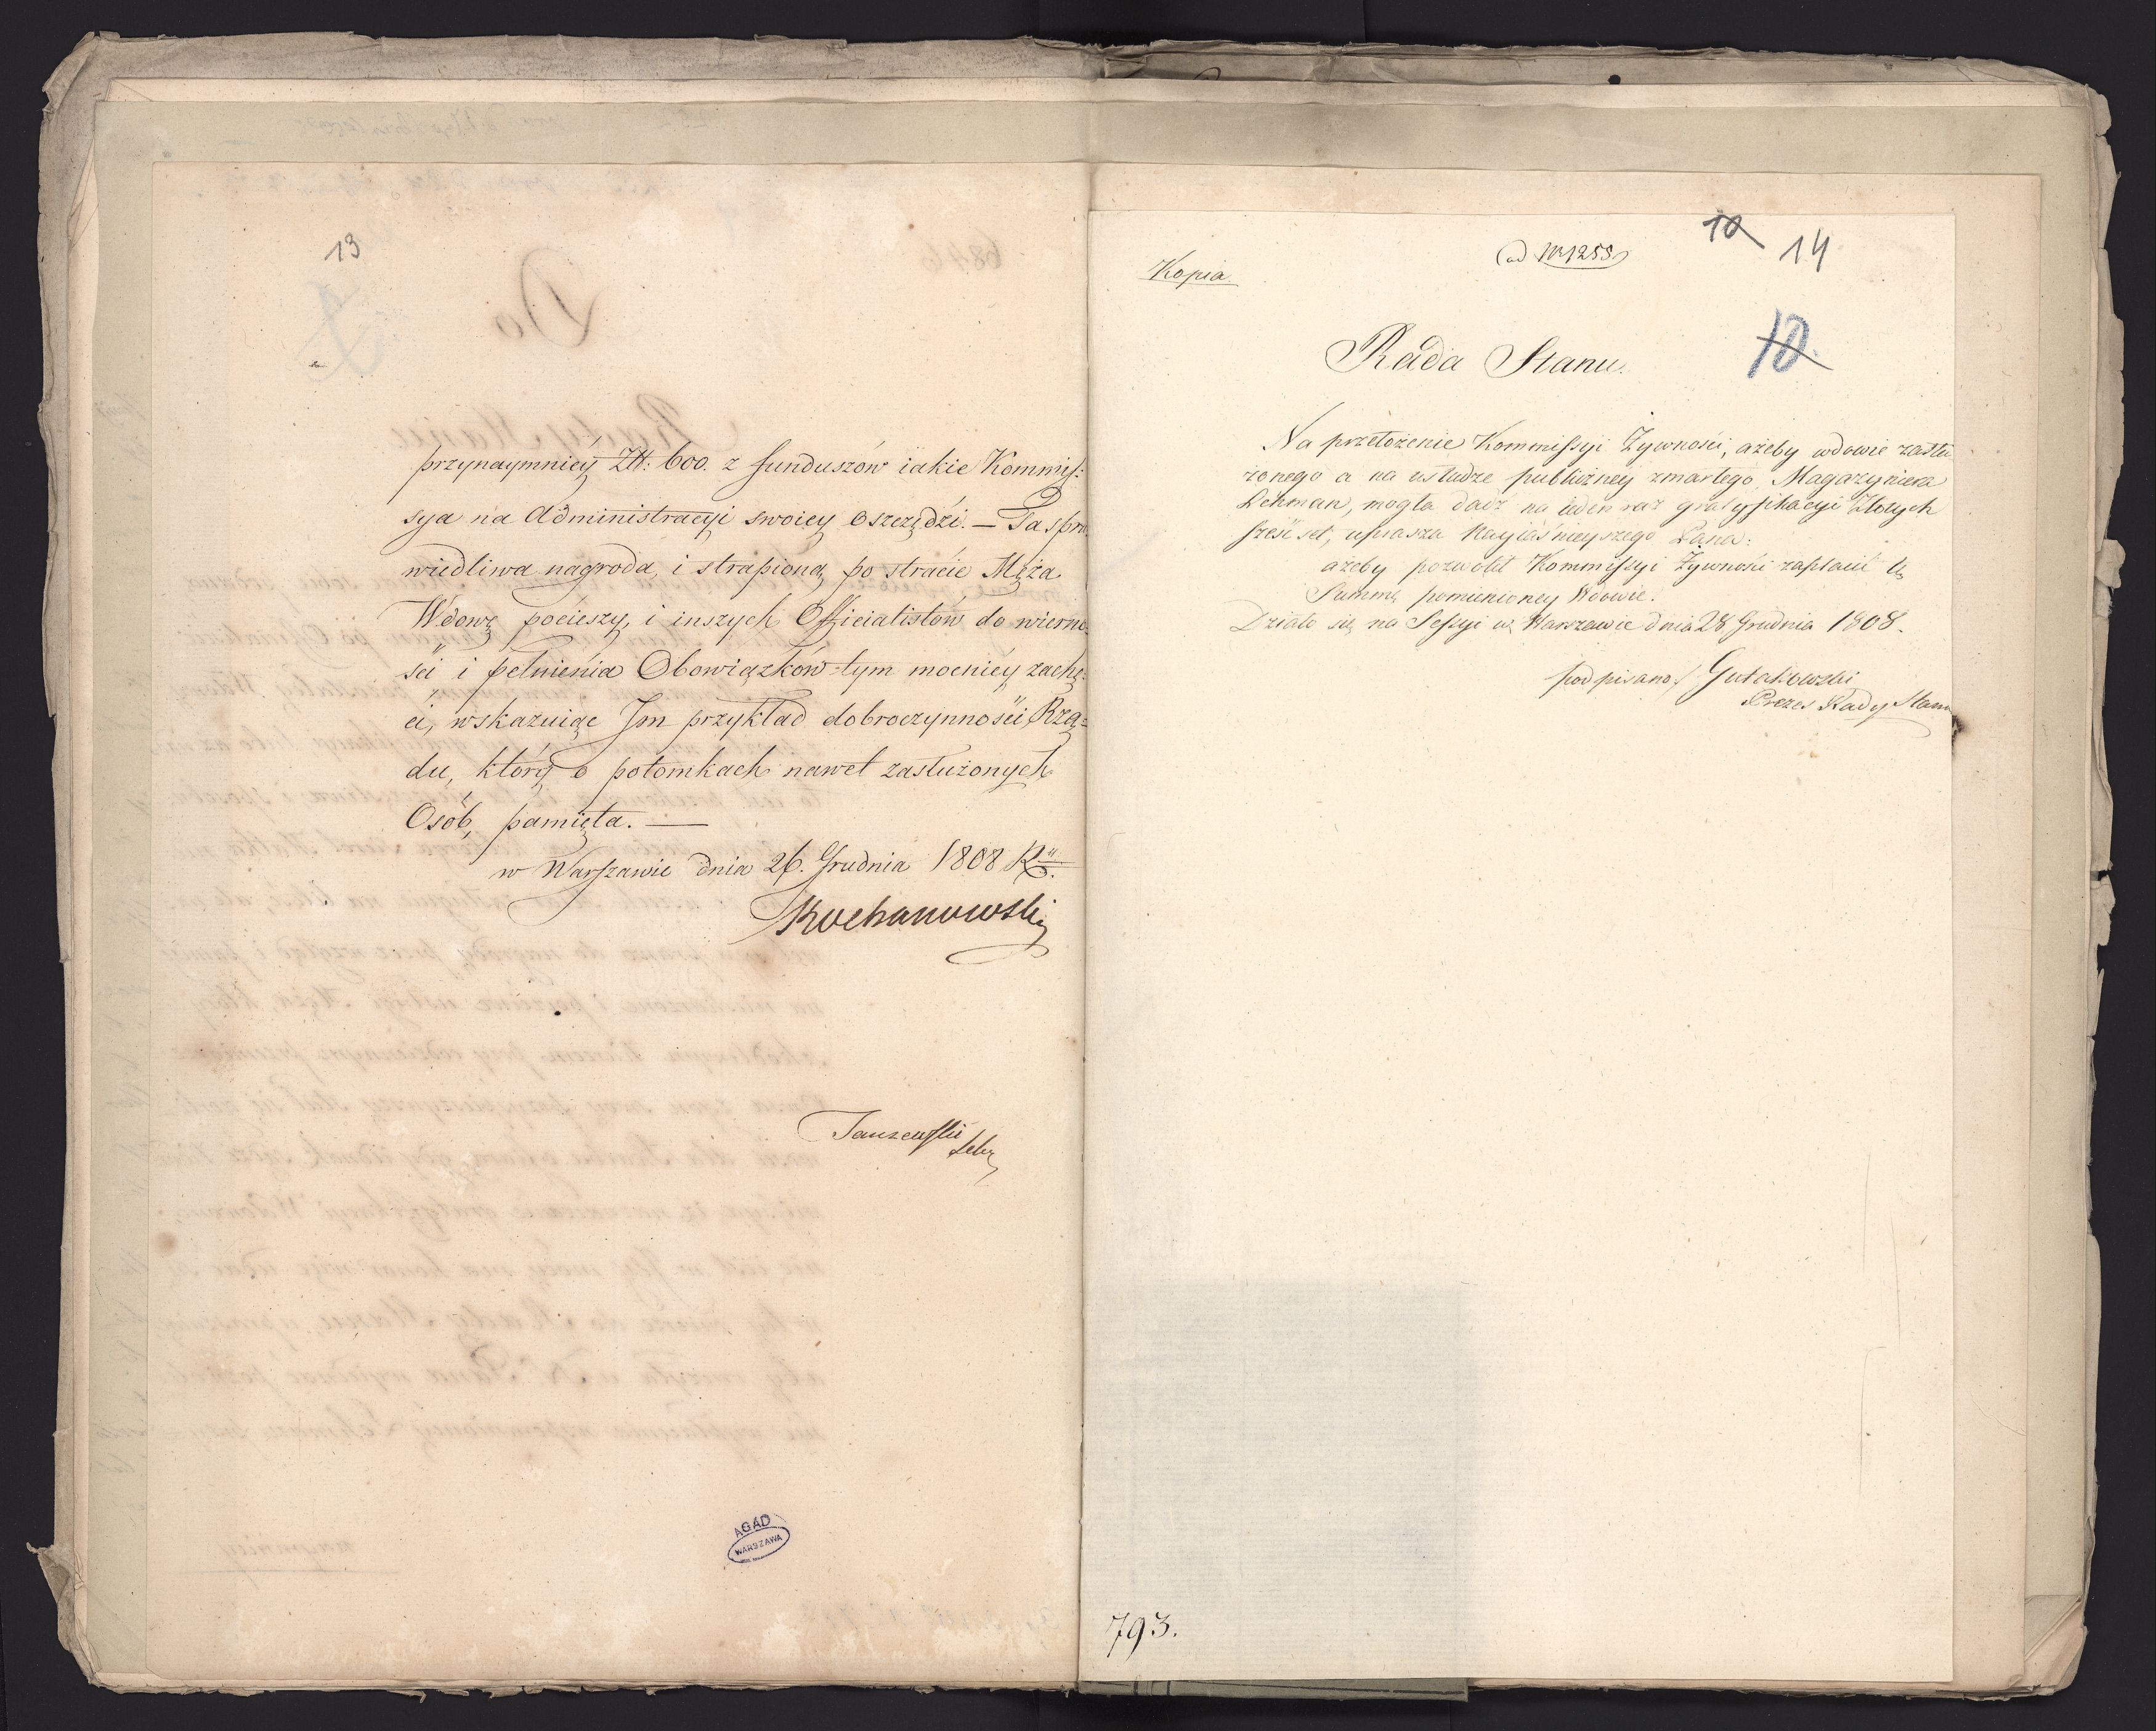 13
przynaymnieÿ Zł: 600. z funduszów iakie Kommis-
sya na Administracyi swoiey oszczędzi. — Ta spra-
wiedliwa nagroda, i strapioną po stracie Męża
Wdowę pocieszy, i inszych Officialistów do wierno-
ści i pełnienia Obowiązków tym mocniéy zachę-
ci, wskazuiąc Im przykład dobroczynności Rzą-
du, który o potomkach nawet zasłużonych
Osób, pamięta. —
w Warszawie dnia 26. Grudnia 1808 Ru.
Kochanowski
Janzewski Sekr
AGAD
WARSZAWA
Kopia
(ad Nr 1255)
10 14
10
Rada Stanu.
Na przełożenie Kommissyi Żywności, ażeby wdowie zasłu
żonego a na usłudze publiczney zmarłego Magazyniera
Lehman, mogła dadź na ieden raz gratyfikacyi Złotych
sześćset, uprasza Nayiaśnieyszego Pana:
ażeby pozwolił Kommissyi Żywności zapłacić tę
Summę pomienioney Wdowie.
Działo się na Sessyi w Warszawie dnia 28 Grudnia 1808.
podpisano/ Gutakowski
Prezes Rady Stanu
793.